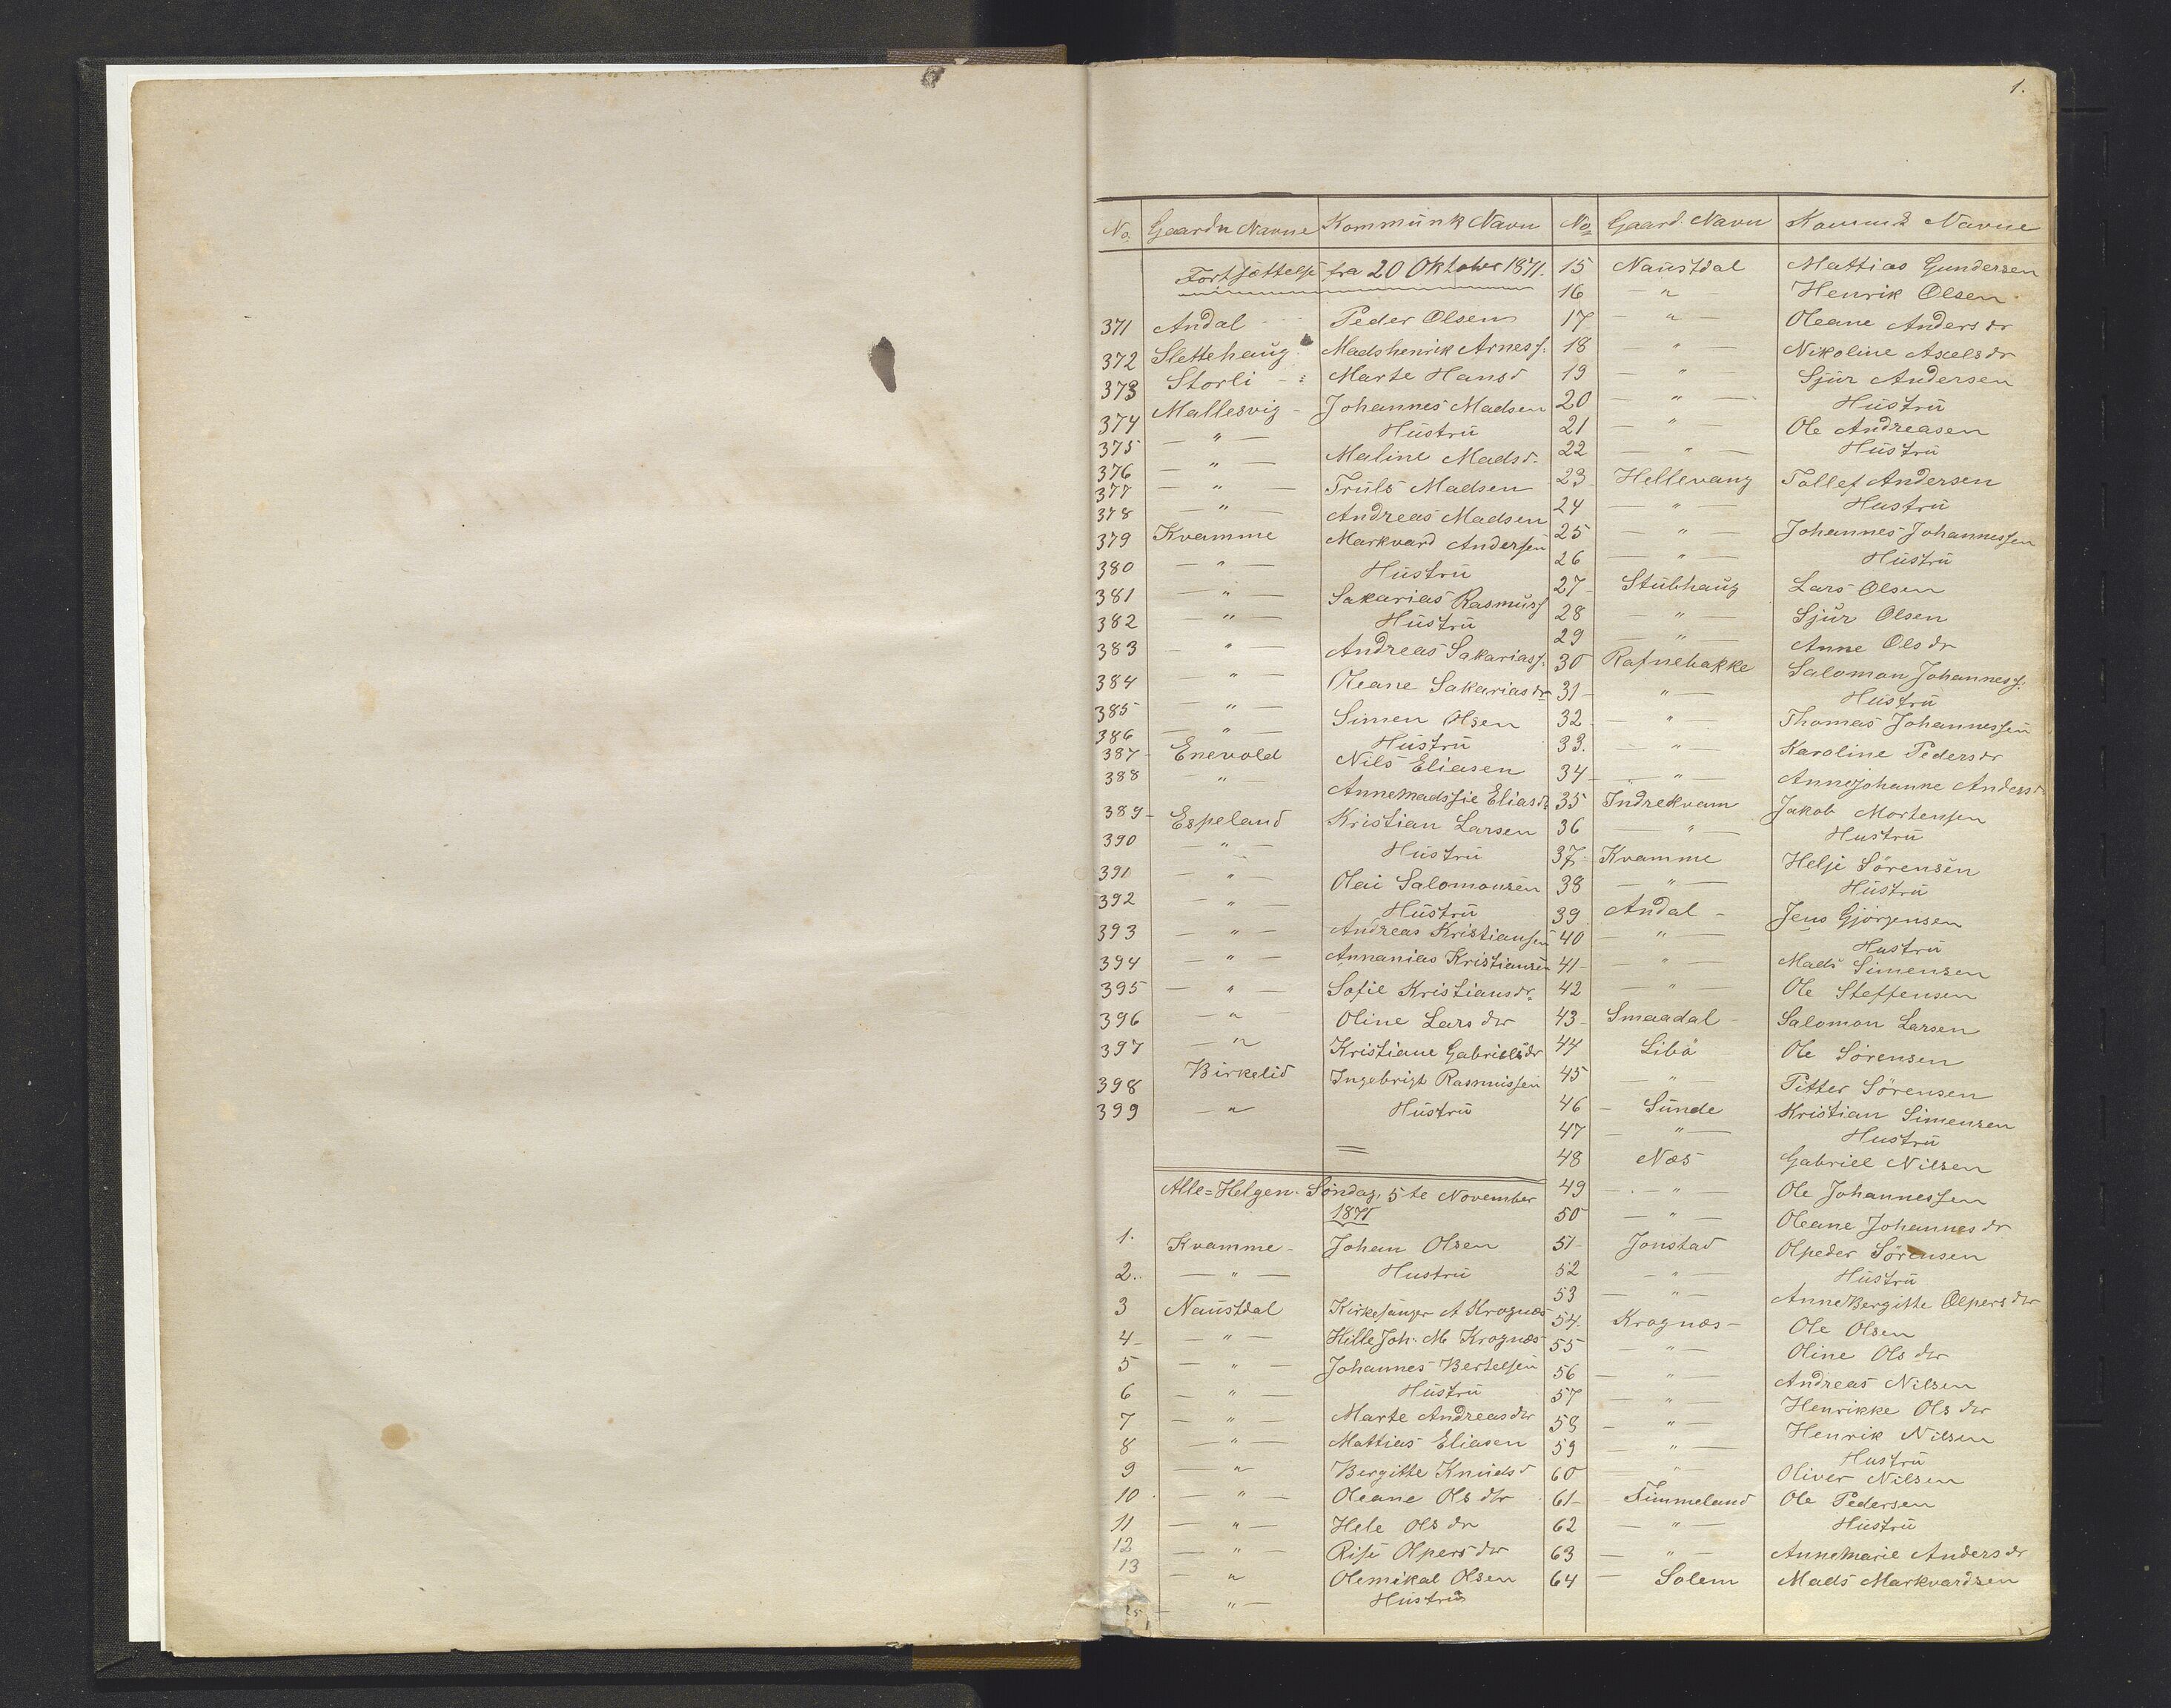 1.
No. Gaardn Navne Kommunk Navn
Fortsættelse fra 20 Oktober 1871.
371 Andal Peder Olsen
372 Slettehaug Madshenrik Arness.
373 Storli Marte Hansd
374 Mallesvig Johannes Madsen
375 — " — Hustru
376 — " — Maline Madsd.
377 — " — Truls Madsen
378 — " — Andreas Madsen
379 Kvamme Markvard Andersen
380 — " — Hustru
381 — " — Sakarias Rasmuss
382 — " — Hustru
383 — " — Andreas Sakariass.
384 — " — Oleane Sakariasdr
385 — " — Simen Olsen
386 — " — Hustru
387 Enevold Nils Eliasen
388 — " — Annemadssie Eliasdr
389 Espeland Kristian Larsen
390 — " — Hustru
391 — " — Olai Salomonsen
392 — " — Hustru
393 — " — Andreas Kristiansen
394 — " — Annanias Kristiansen
395 — " — Sofie Kristiansdr.
396 — " — Oline Larsdtr
397 — " — Kristiane Gabrielsdr
398 Birkelid Ingebrigt Rasmussen
399 — " — Hustru
Alle=Helgen. Söndag, 5te November
1871
1. Kvamme Johan Olsen
2. — " — Hustru
3 Naustdal Kirkesanger A Krognæs
4 — " — Hille Joh. M. Krognæs
5 — " — Johannes Bertelsen
6 — " — Hustru
7 — " — Marte Andreasdtr
8 — " — Mattias Eliasen
9 — " — Bergitte Knudsd
10 — " — Oleane Olsdtr
11 — " — Hele Olsdr
12 — " — Rise Olpersdtr
13 — " — Olemikal Olsen
— " — Hustru
No Gaard. Navn Kommk Navne
15 Naustdal Mattias Gundersen
16 — " — Henrik Olsen
17 — " — Oleane Andersdr
18 — " — Nikoline Axelsdr
19 — " — Sjur Andersen
20 — " — Hustru
21 — " — Ole Andreasen
22 — " — Hustru
23 Hellevang Tollef Andersen
24 — " — Hustru
25 — " — Johannes Johannessen
26 — " — Hustru
27 Stubhaug Lars Olsen
28 — " — Sjur Olsen
29 — " — Anne Olsdr
30 Rafnebakke Salomon Johanness.
31 — " — Hustru
32 — " — Thomas Johannessen
33. — " — Karoline Pedersdr
34 — " — Annejohanne Andersd
35 Indrekvam Jakob Mortensen
36 — " — Hustru
37 Kvamme Helje Sörensen
38 — " — Hustru
39 Andal Jens Gjörgensen
40 — " — Hustru
41 — " — Mads Simensen
42 — " — Ole Steffensen
43 Smaadal Salomon Larsen
44 Libö Ole Sörensen
45 — " — Pitter Sörensen
46 Sunde Kristian Simensen
47 — " — Hustru
48 Næs Gabriel Nilsen
49 — " — Ole Johannessen
50 — " — Oleane Johannesdr
51 Jonstad Olpeder Sörensen
52 — " — Hustru
53 — " — AnneBergitte Olpersdtr
54. Krognæs Ole Olsen
55 — " — Oline Olsdtr
56 — " — Andreas Nilsen
57 — " — Henrikke Olsdtr
58 — " — Henrik Nilsen
59 — " — Hustru
60 — " — Oliver Nilsen
61 Fimmeland Ole Pedersen
62 — " — Hustru
63 — " — AnneMarie Andersdr
64 Solem Mads Markvardsen